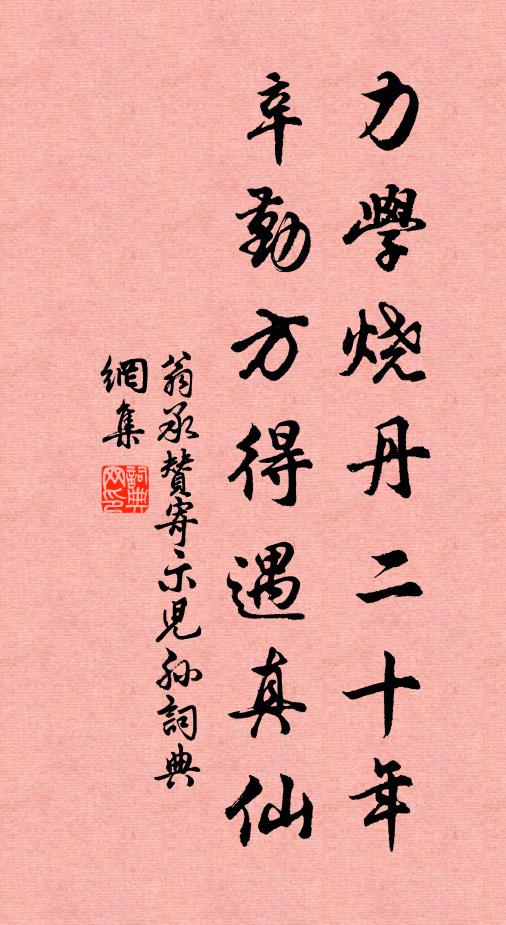 力學烧丹二十年
辛勤方得遇真仙
翁承贊寄示児孫詞典
網集
詞典
网印